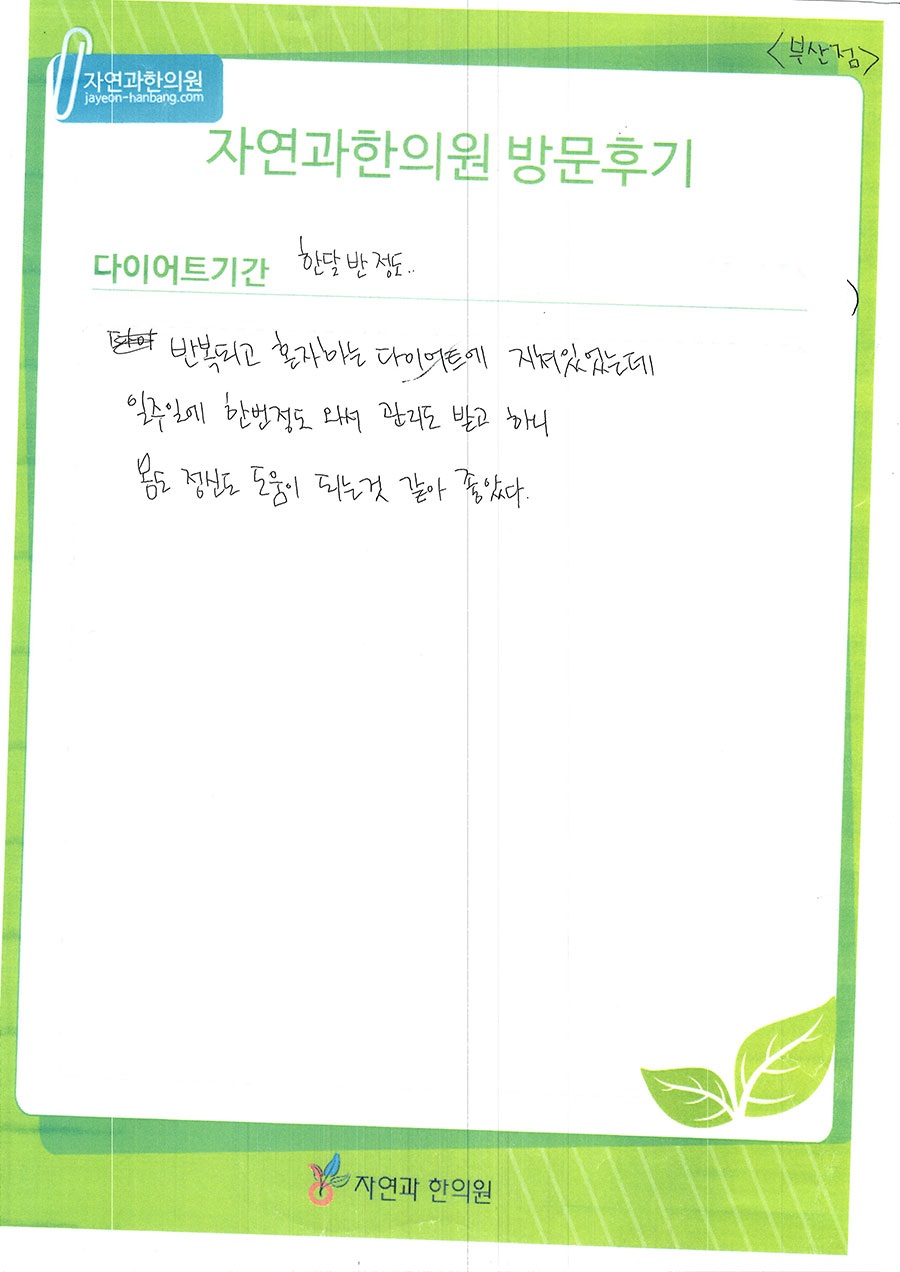 <부산점>
자연과한의원
jayeon-hanbang.com
자연과한의원 방문후기
다이어트기간 한달 반 정도..
반복되고 혼자하는 다이어트에 지쳐있었는데
일주일에 한번정도 와서 관리도 받고 하니
몸도 정신도 도움이 되는것 같아 좋았다.
자연과 한의원